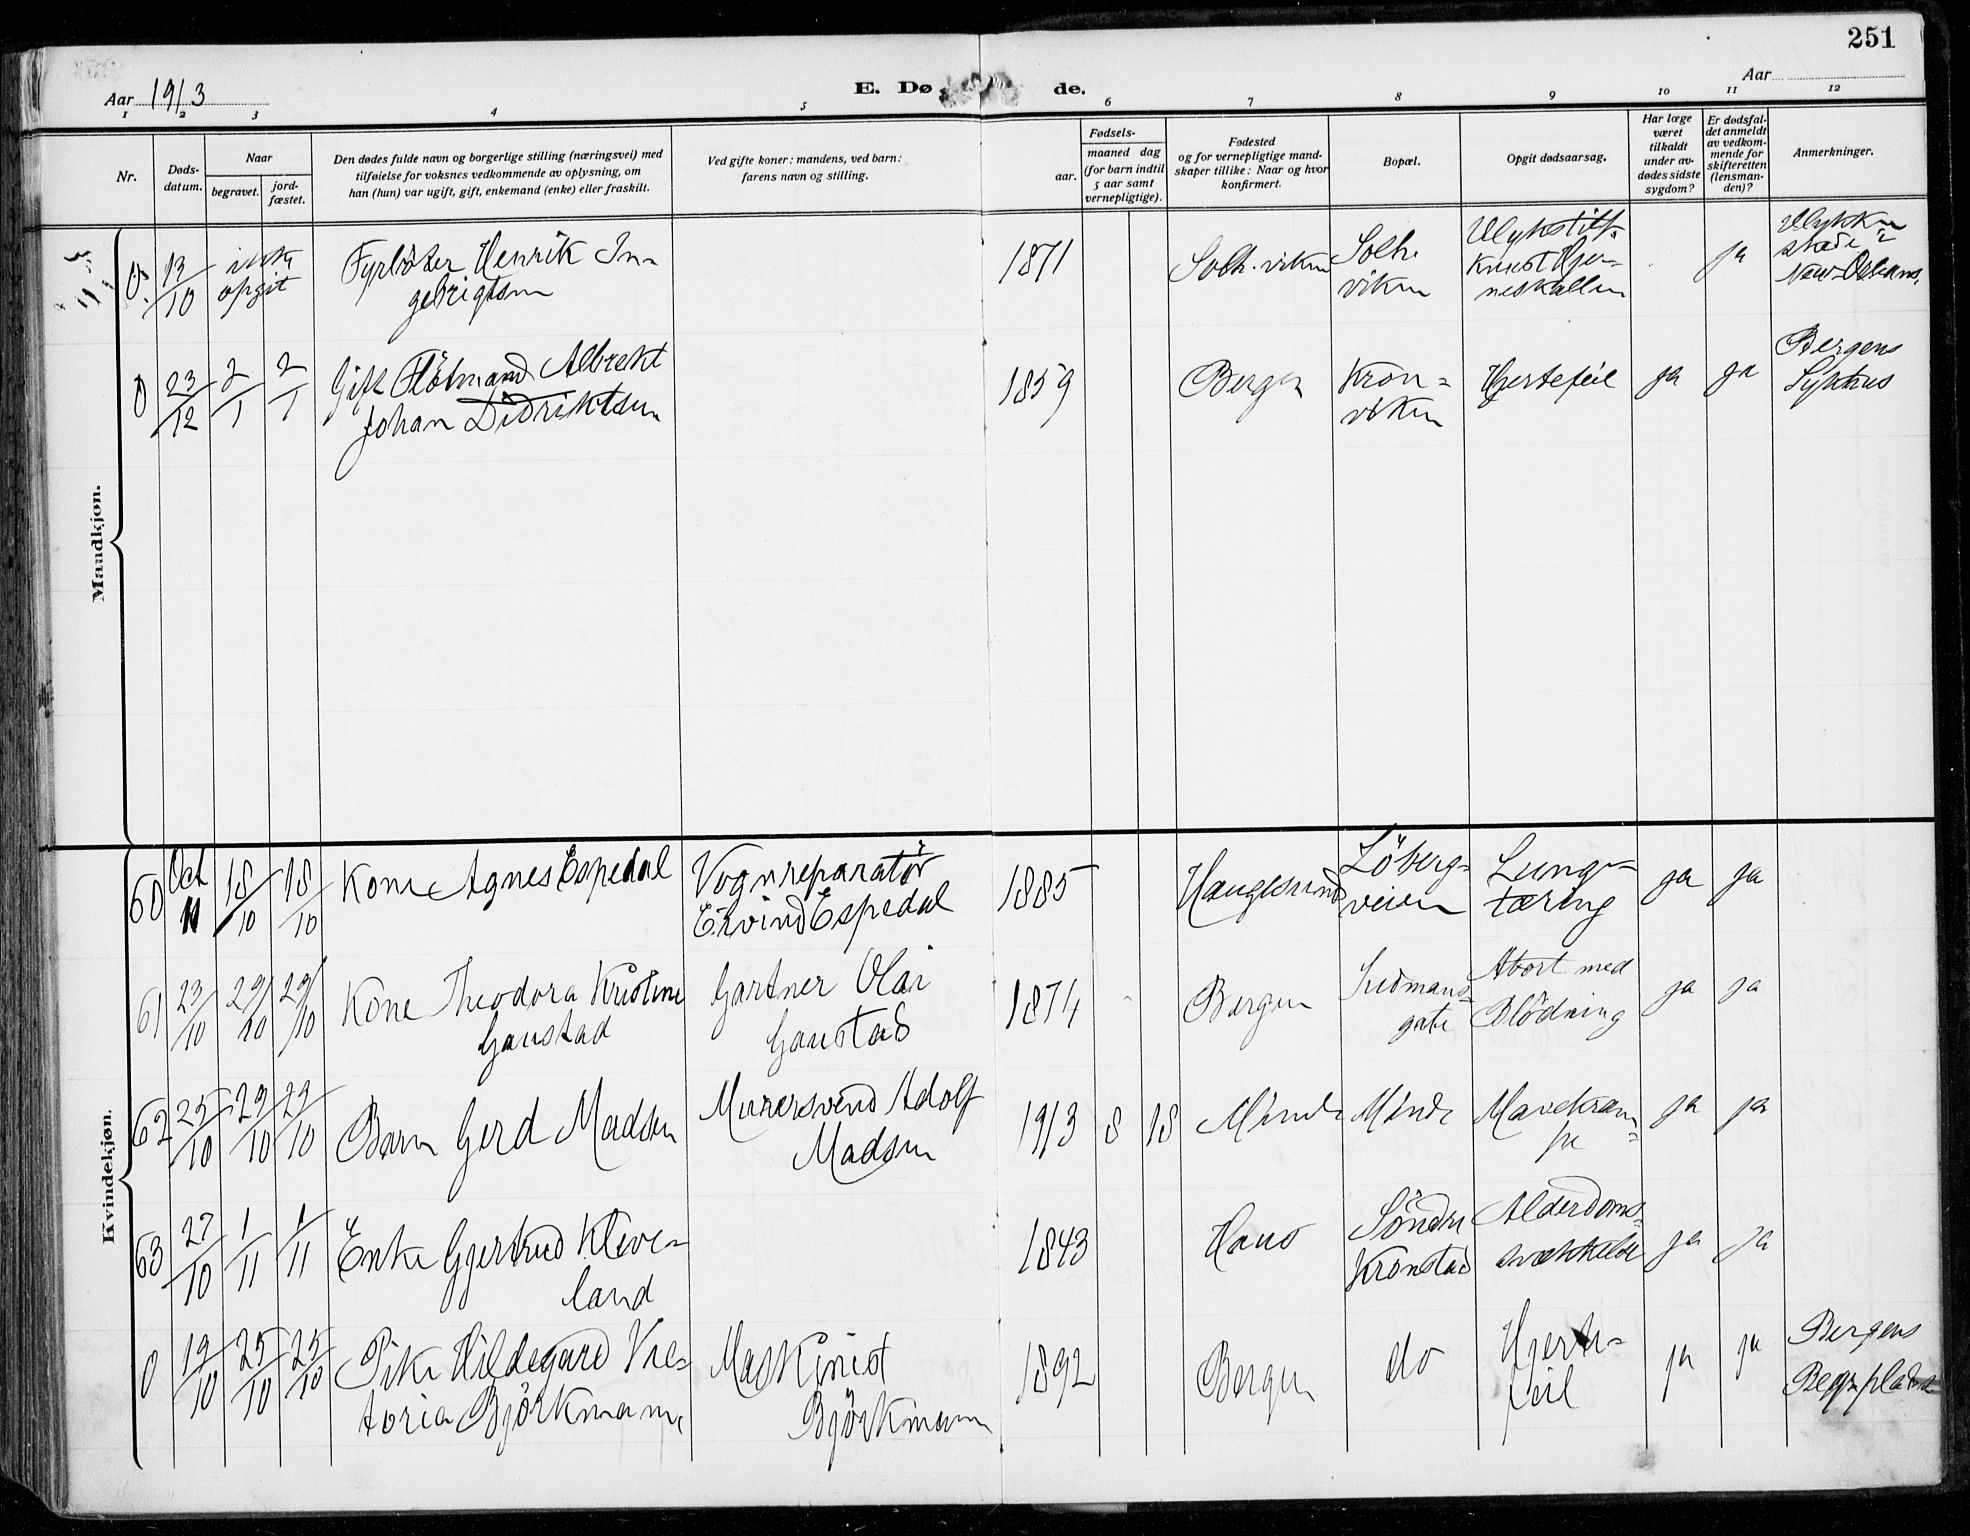 251
Aar 1913
E. Dø de.
Aar
1 2 3 4 5 6 7 8 9 10 11 12
Nr.
Døds-
datum.
Naar
begravet.
jord-
fæstet.
Den dødes fulde navn og borgerlige stilling (næringsvei) med
tilføielse for voksnes vedkommende av oplysning, om
han (hun) var ugift, gift, enkemand (enke) eller fraskilt.
Ved gifte koner: mandens, ved barn:
farens navn og stilling.
Fødsels-
aar.
maaned dag
(for barn indtil
5 aar samt
vernepligtige).
Fødested
og for vernepligtige mand-
skaper tillike: Naar og hvor
konfirmert.
Bopæl.
Opgit dødsaarsag.
Har læge
været
tilkaldt
under av-
dødes sidste
sygdom?
Er dødsfal-
det anmeldt
av vedkom-
mende for
skifteretten
(lensman-
den)?
Anmerkninger.
Mandkjøn.
0 13/10
ikke
opgit
Fyrbøter Henrik In-
gebrigtsen
1871
Solh.viken
Solh.
viken
Ulykstilf.
knust Hjer-
neskallen
ja
Ulykken
skede i
New-Orleans.
0 23/12 2/1 2/1
Gift Flötmand Albrekt
Johan Didriktsen
1859
Bergen
Kron-
viken
Hjertefeil
ja
ja
Bergens
Sykhus
Kvindekjøn.
60 Oct 11 18/10 18/10
Kone Agnes Espedal
Vognreparatör
Eivind Espedal
1885
Haugesund
Löberg-
veien
Lunge-
tæring
ja
ja
61 23/10 29/10 29/10
Kone Theodora Kristine
Gaustad
Gartner Olai
Gaustad
1874
Bergen
gate
Abort med
Blödning
ja
ja
62 25/10 29/10 29/10
Barn Gerd Madsen
Murersvend Adolf
Madsen
1913 8 18
Minde
Minde
Mavekram-
pe
ja
ja
63 27/10 1/11 1/11
Enke Gjertrud Kleve-
land
1843
Haus
Söndre
Kronstad
Alderdoms-
svækkelse
ja
ja
0 19/10 25/10 25/10
Pike Hildegard Vic-
toria Björkmann
Maskinist
Björkmann
1892
Bergen
do
Hjerte-
feil
ja
ja
Bergens
Begr.plads